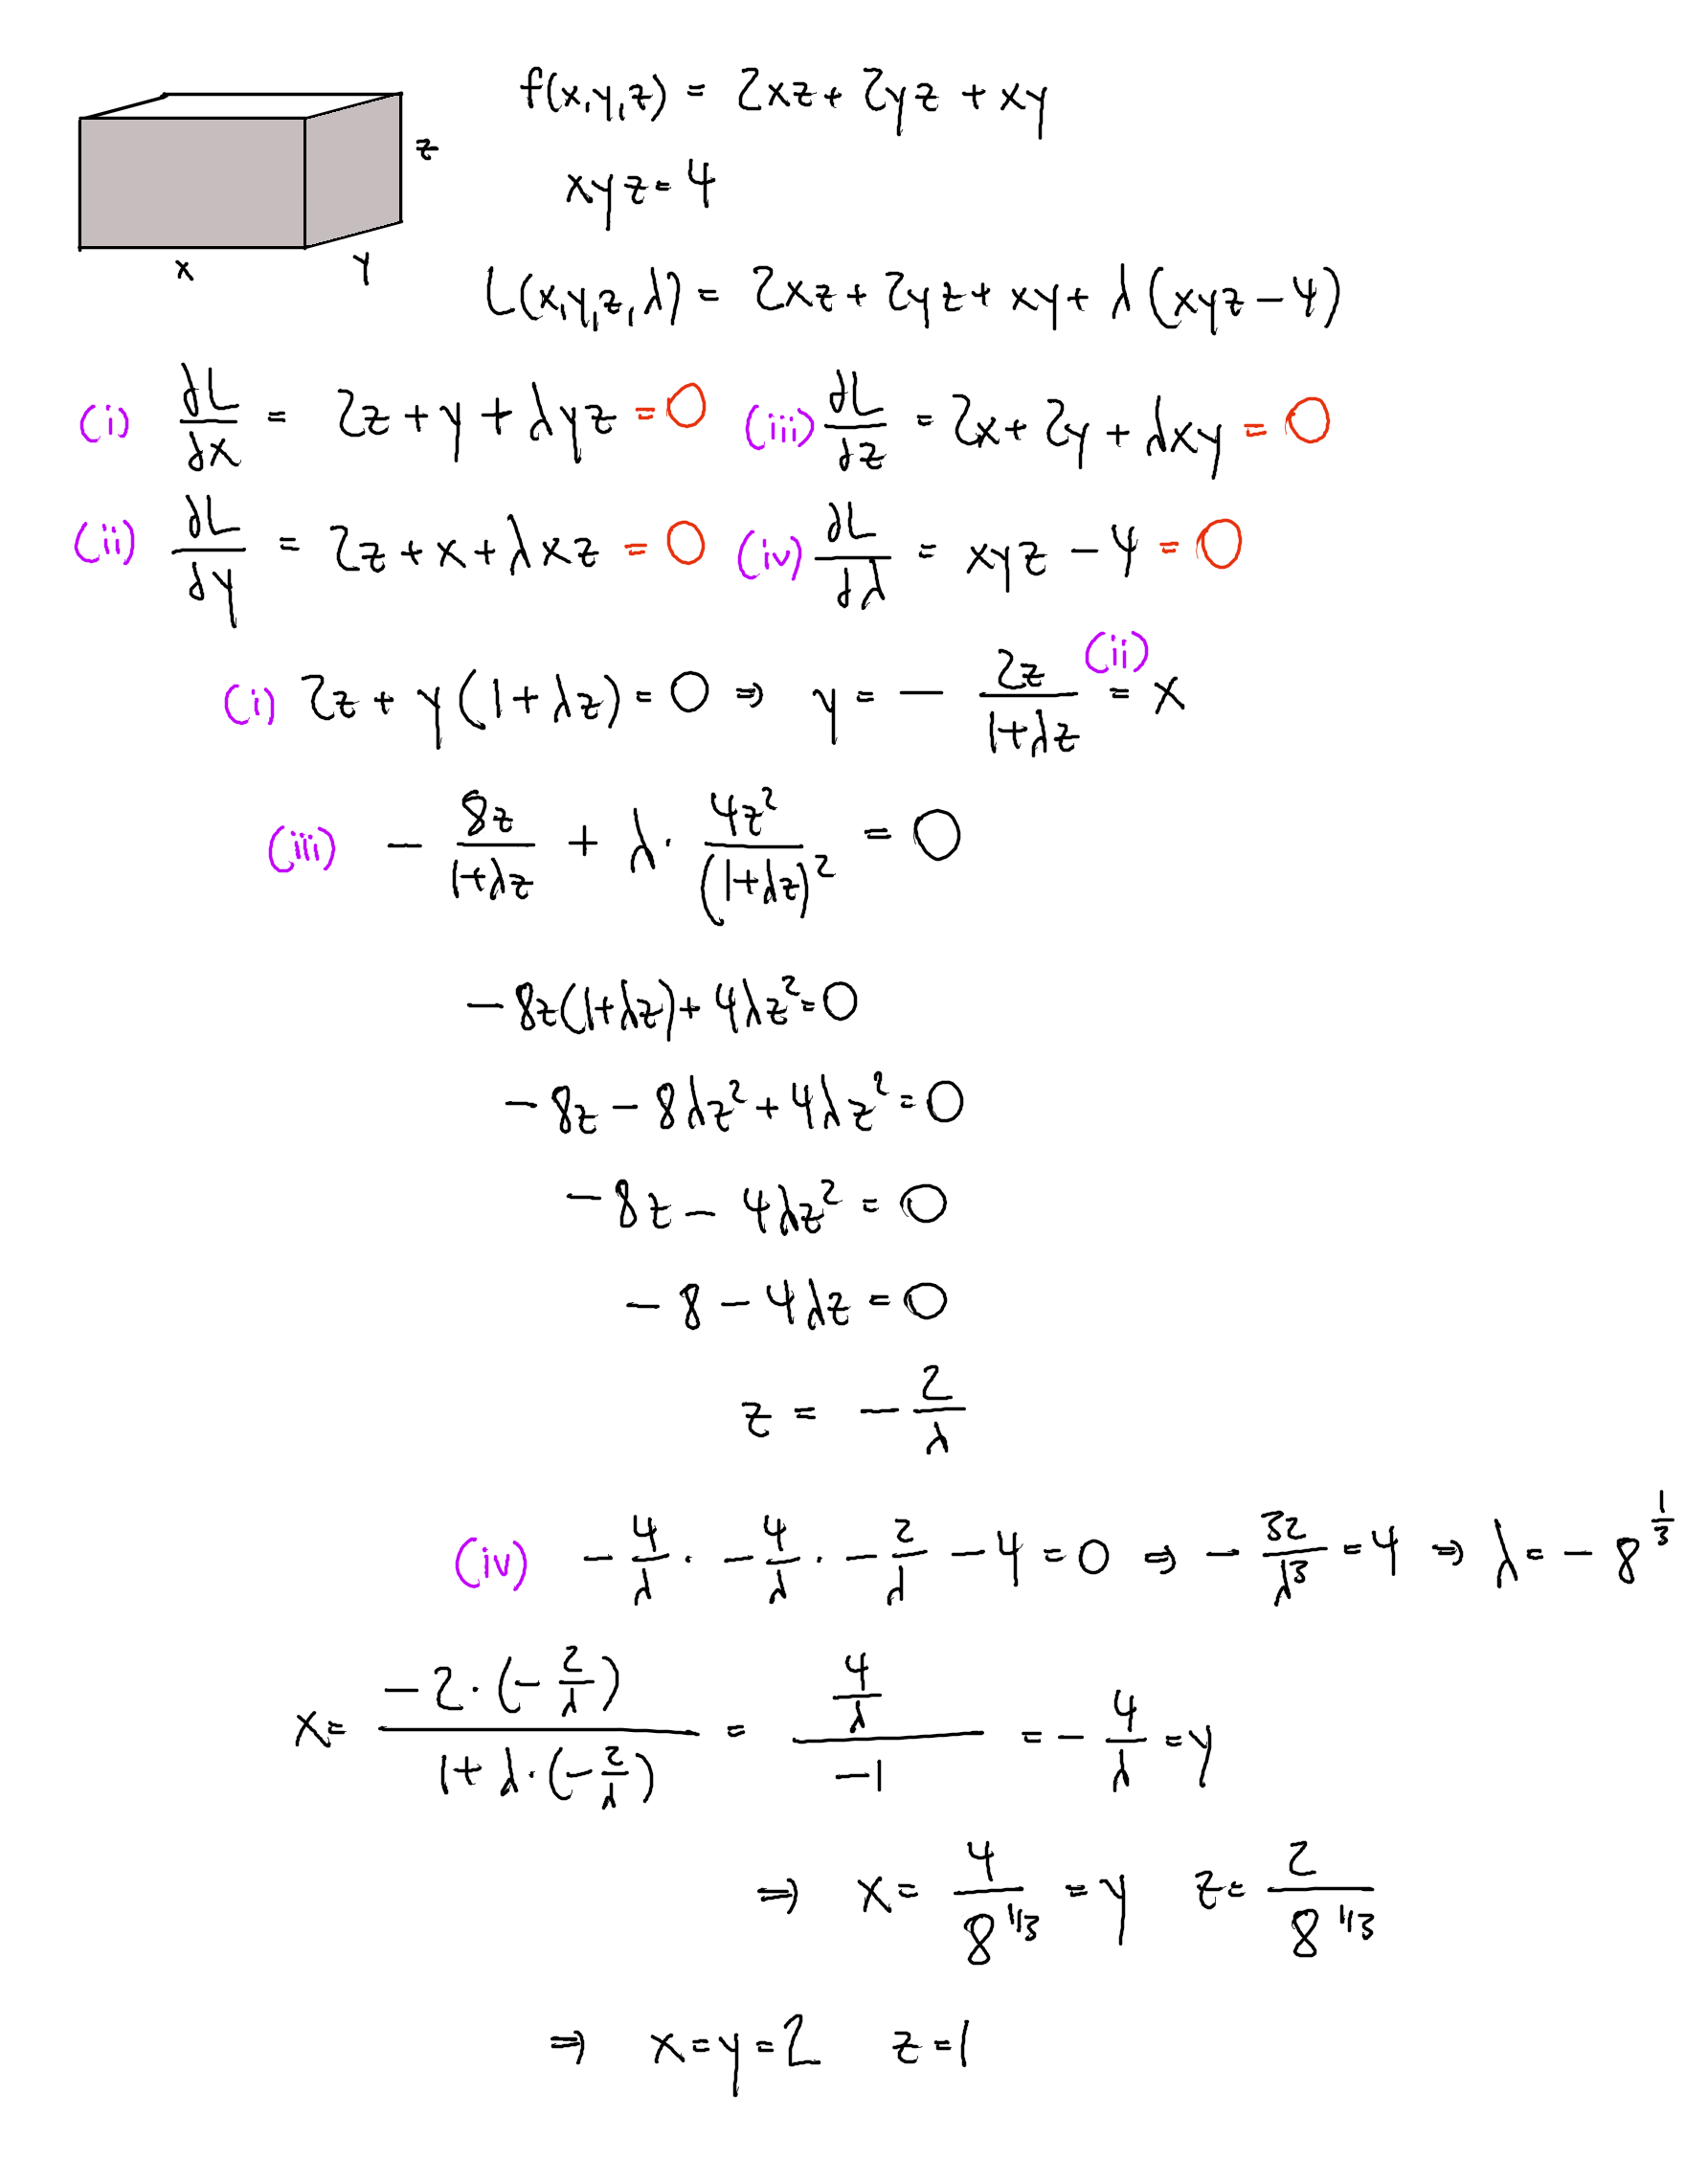 f(x,y,z) = 2xz + 2yz + xy
z
xyz = 4
x y
L(x,y,z,λ) = 2xz + 2yz + xy + λ(xyz − 4)
(i) ∂L/∂x = 2z + y + λyz = 0 (iii) ∂L/∂z = 2x + 2y + λxy = 0
(ii) ∂L/∂y = 2z + x + λxz = 0 (iv) ∂L/∂λ = xyz − 4 = 0
(i) 2z + y(1+λz) = 0 ⇒ y = − 2z/(1+λz) (ii) = x
(iii) − 8z/(1+λz) + λ · 4z²/(1+λz)² = 0
−8z(1+λz) + 4λz² = 0
−8z − 8λz² + 4λz² = 0
−8z − 4λz² = 0
−8 − 4λz = 0
z = − 2/λ
(iv) − 4/λ · − 4/λ · − 2/λ − 4 = 0 ⇒ − 32/λ³ = 4 ⇒ λ = − 8^(1/3)
x = −2·(−2/λ) / (1+λ·(−2/λ)) = (4/λ)/−1 = − 4/λ = y
⇒ x = 4/8^(1/3) = y z = 2/8^(1/3)
⇒ x = y = 2 z = 1